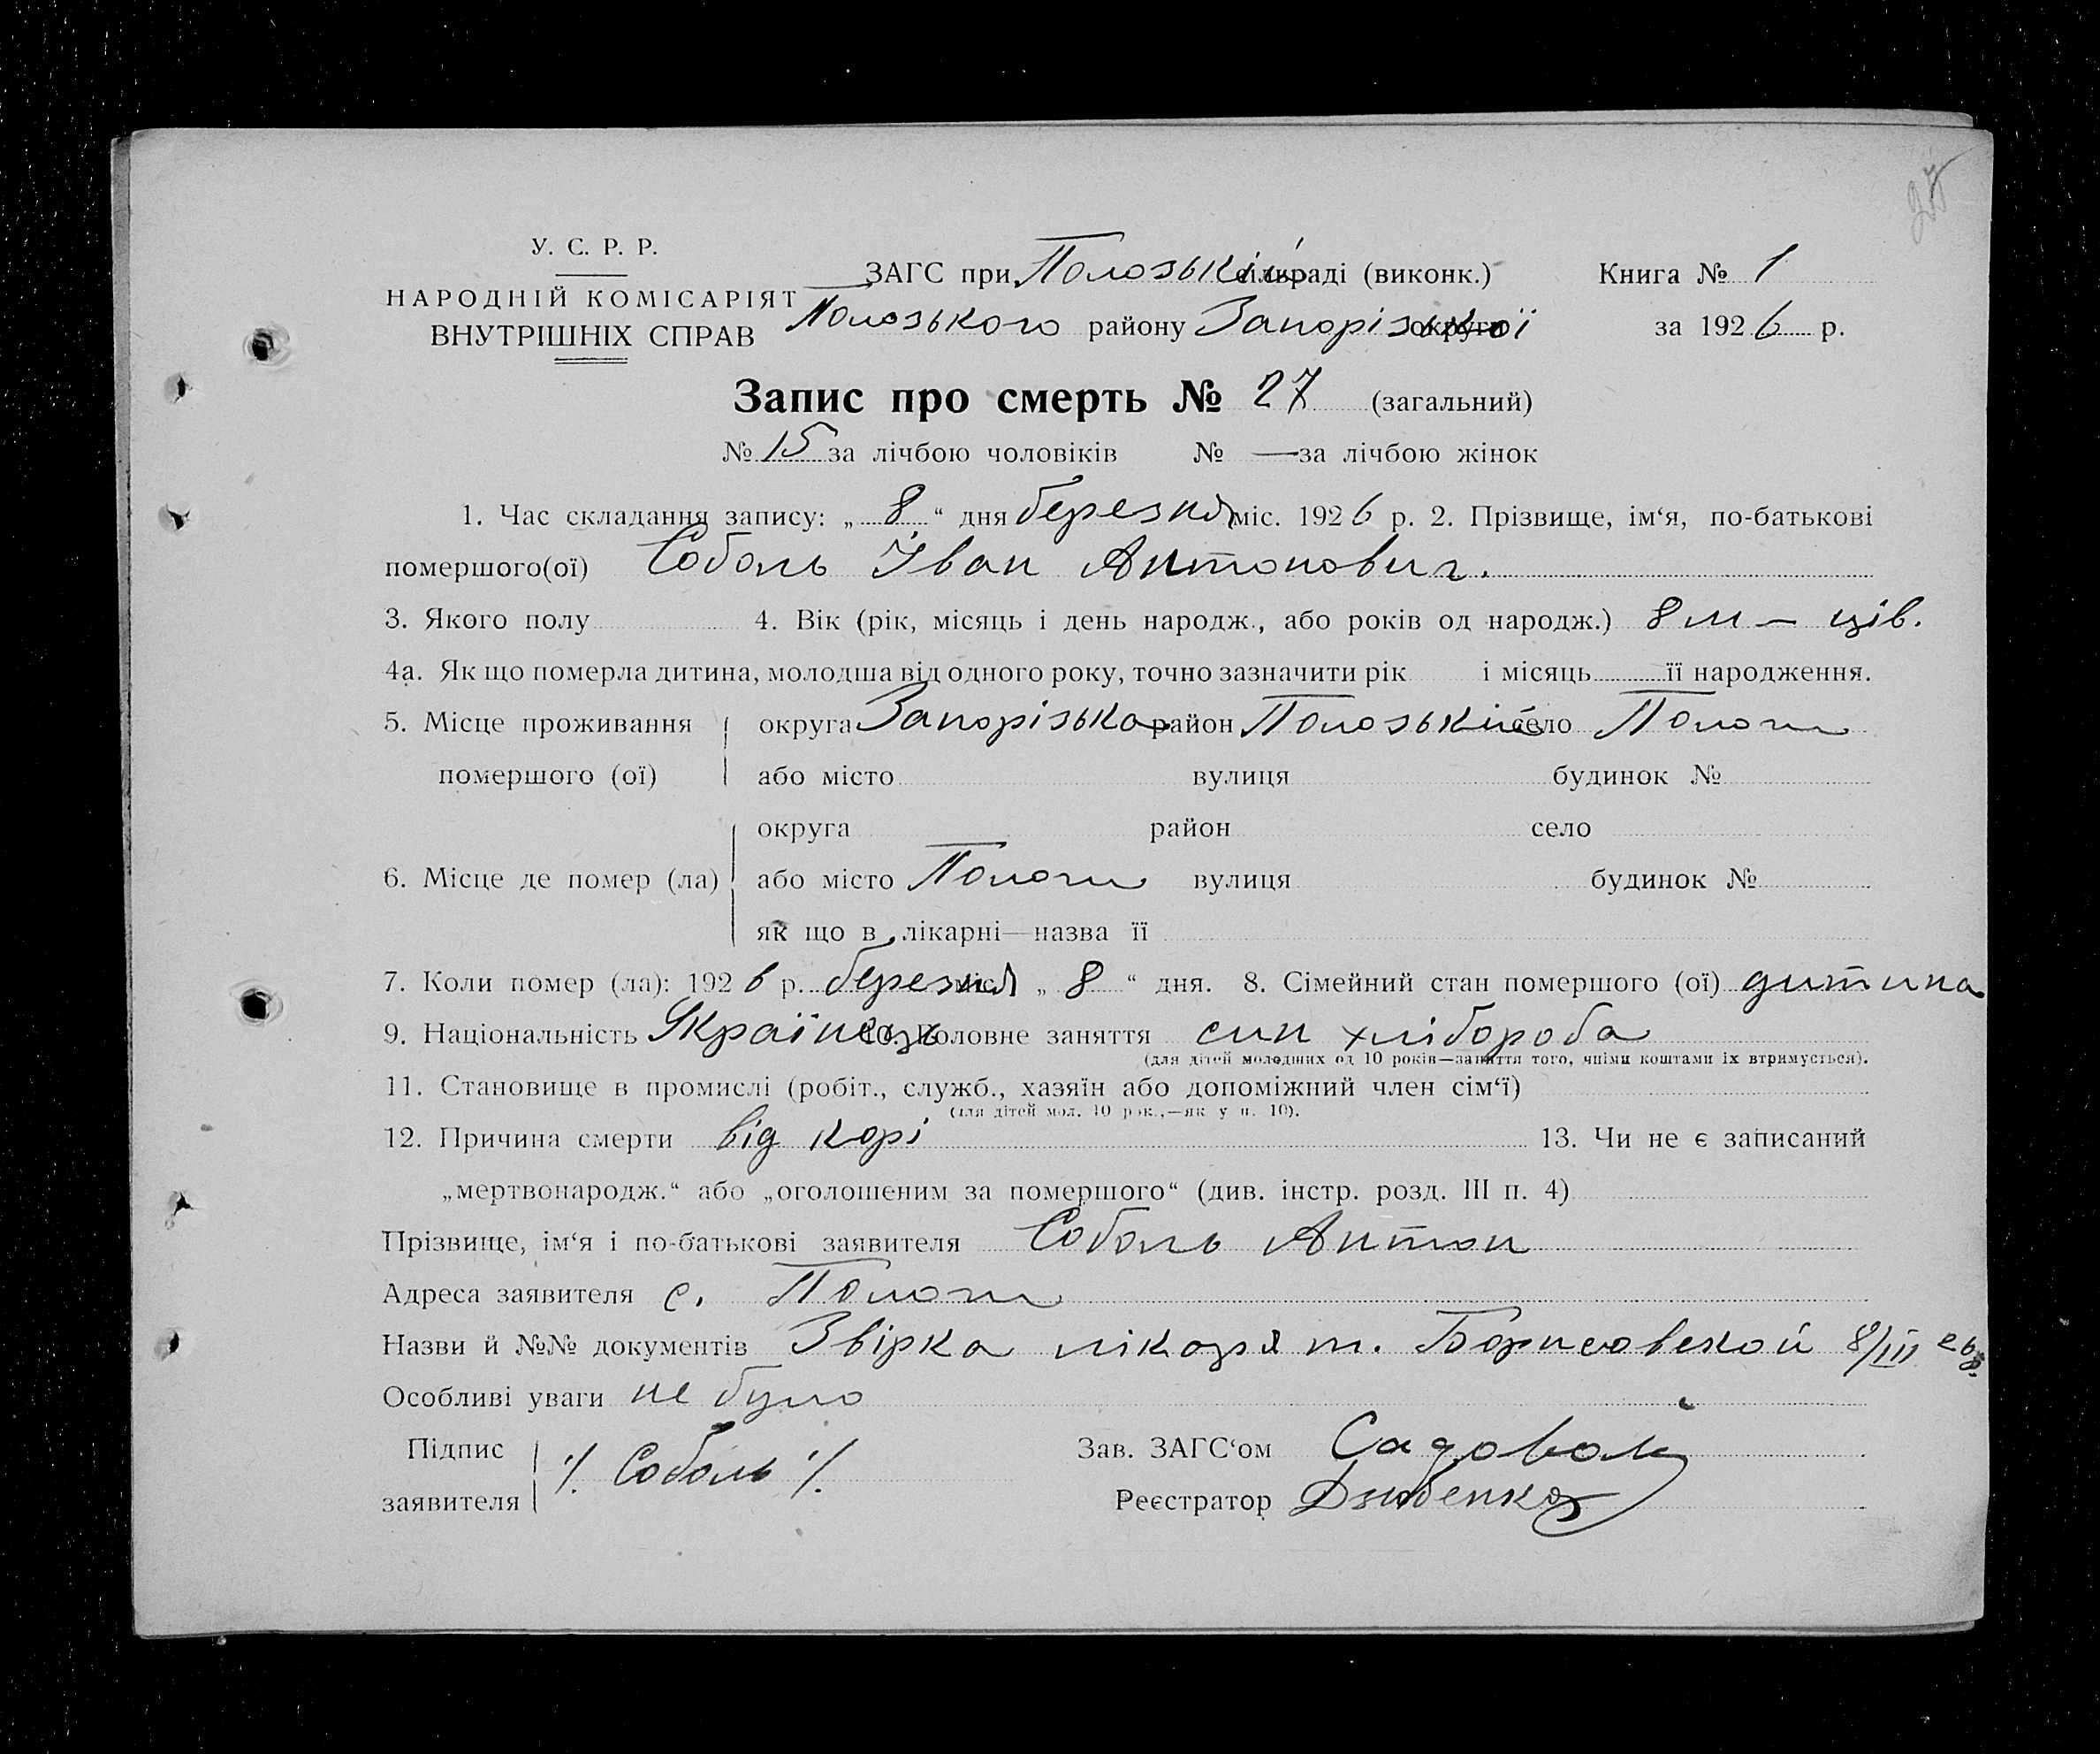 27
У. С. Р. Р.
НАРОДНІЙ КОМІСАРІЯТ
ВНУТРІШНІХ СПРАВ
ЗАГС при Полозькій сільраді (виконк.) Книга № 1
Полозького району Запорізької округи за 1926 р.
Запис про смерть № 27 (загальний)
№ 15 за лічбою чоловіків № — за лічбою жінок
1. Час складання запису: „ 8 “ дня березня міс. 1926 р. 2. Прізвище, ім‘я, по-батькові
помершого(ої) Соболь Іван Антонович.
3. Якого полу 4. Вік (рік, місяць і день народж., або років од народж.) 8 м — ців.
4а. Як що померла дитина, молодша від одного року, точно зазначити рік і місяць її народження.
5. Місце проживання округа Запорізька район Полозький село Пологи
помершого (ої) або місто вулиця будинок №
округа район село
6. Місце де помер (ла) або місто Пологи вулиця будинок №
як що в лікарні—назва її
7. Коли помер (ла): 1926 р. березня міс. „ 8 “ дня. 8. Сімейний стан помершого (ої) дитина
9. Національність Українець 10. Головне заняття син хлібороба
(для дітей молодших од 10 років—заняття того, чиїми коштами їх втримується).
11. Становище в промислі (робіт., служб., хазяїн або допоміжний член сім‘ї)
(для дітей мол. 10 рок.,—як у п. 10).
12. Причина смерти від корі 13. Чи не є записаний
„мертвонародж.“ або „оголошеним за помершого“ (див. інстр. розд. III п. 4)
Прізвище, ім‘я і по-батькові заявителя Соболь Антон
Адреса заявителя с. Пологи
Назви й №№ документів Звірка лікаря т. Борисовской 8/III
Особливі уваги не було
Підпис
заявителя /. Соболь /.
Зав. ЗАГС‘ом Садовой
Реєстратор